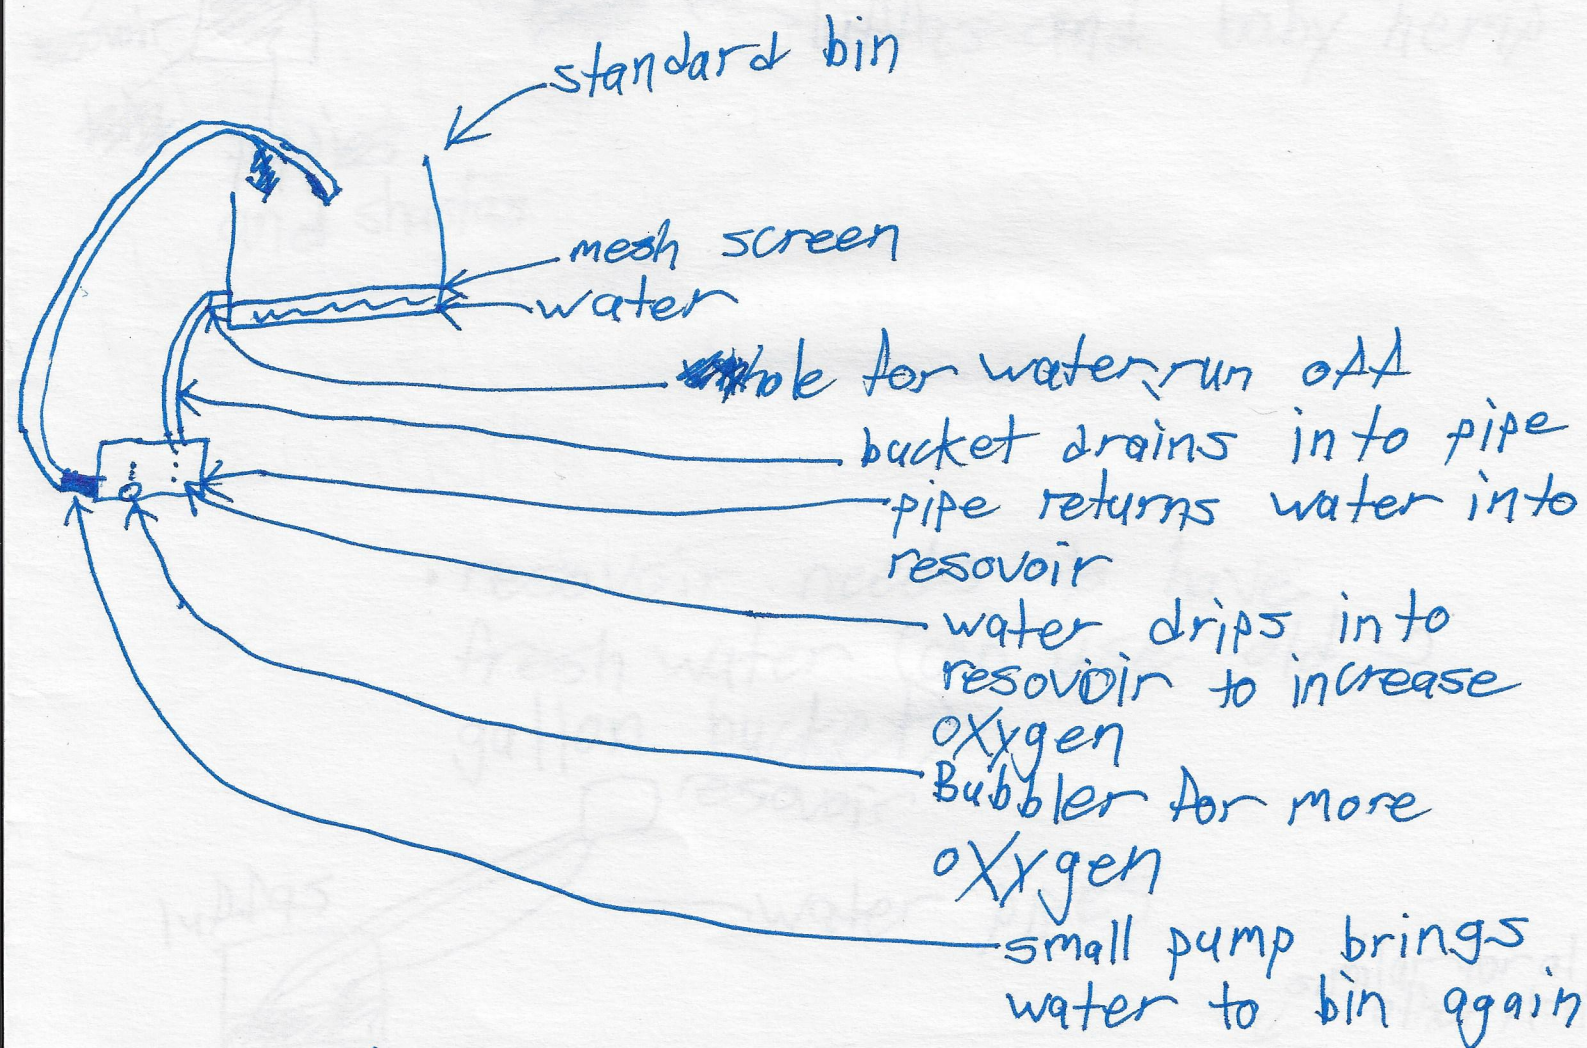 standard bin
mesh screen
water
hole for water run off
bucket drains into pipe
pipe returns water into
resovoir
water drips into
resovoir to increase
oxygen
Bubbler for more
oxygen
small pump brings
water to bin again